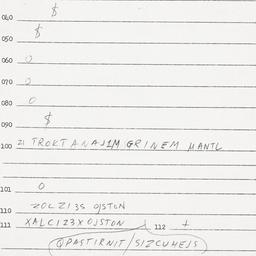 040 $
050 $
060 0
070 0
080 0
090 $
100 21 TROKTANAJIM GRINEM MANTL
101 0
110 ZOLZI3S OJSTON
111 XALC123XOJSTON 112 +
QPASTIRNIT/SIZCUHEJS